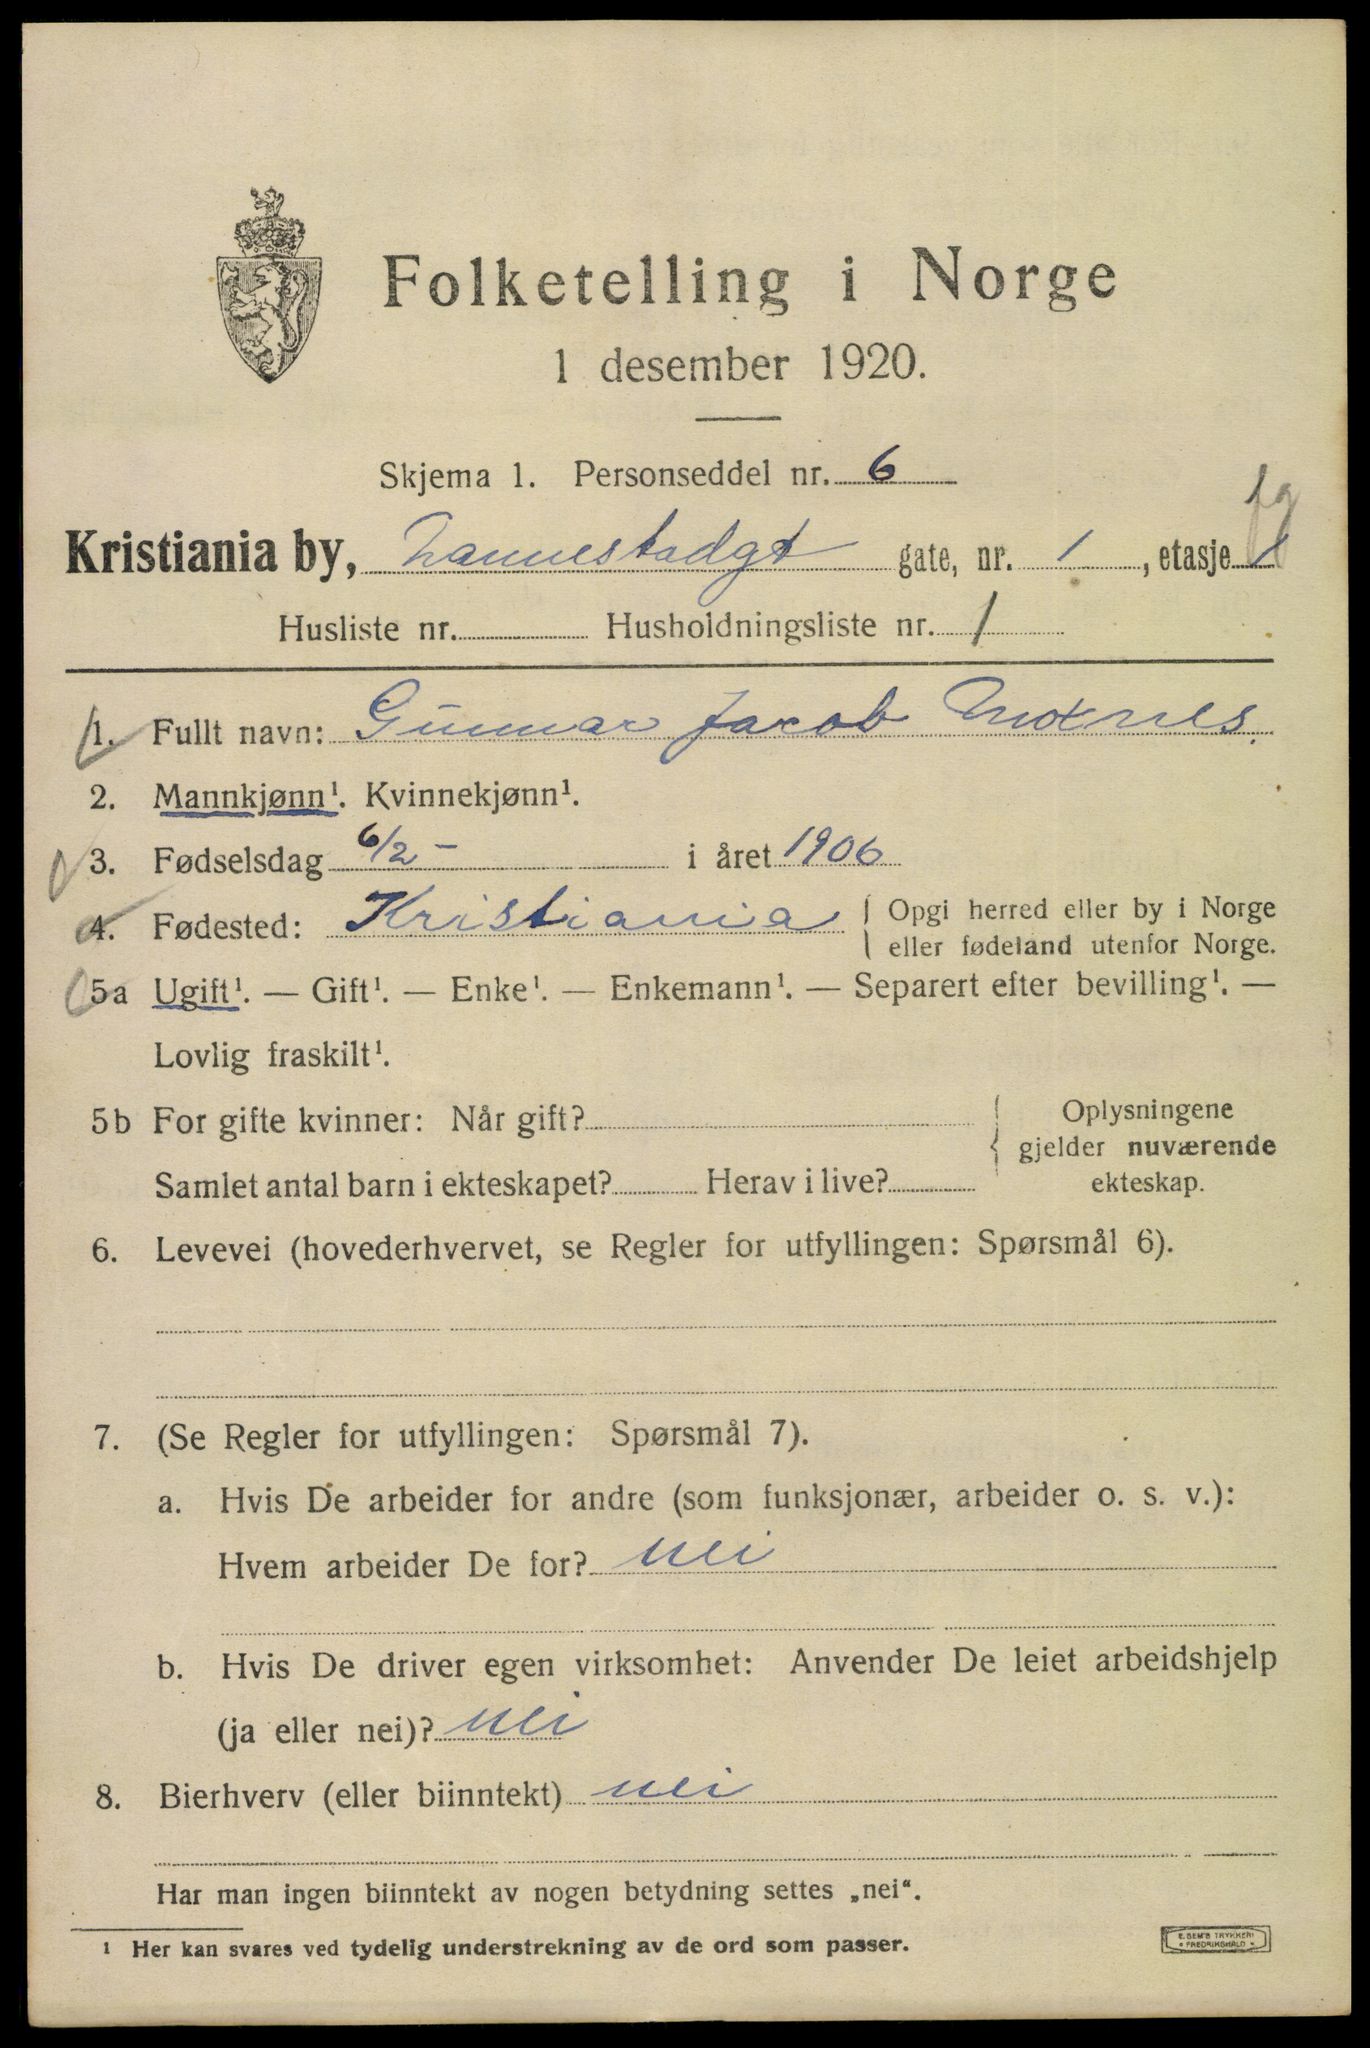 Folketelling i Norge
1 desember 1920.
Skjema 1. Personseddel nr. 6
Kristiania by, Lannestadgt gate, nr. 1, etasje 1
Husliste nr. Husholdningsliste nr. 1
1. Fullt navn: Gunnar Jacob Moxnes.
2. Mannkjønn¹. Kvinnekjønn¹.
3. Fødselsdag 6/2 - i året 1906
4. Fødested: Kristiania Opgi herred eller by i Norge
eller fødeland utenfor Norge.
5a Ugift¹. — Gift¹. — Enke¹. — Enkemann¹. — Separert efter bevilling¹. —
Lovlig fraskilt¹.
5b For gifte kvinner: Når gift? Oplysningene
gjelder nuværende
Samlet antal barn i ekteskapet? Herav i live? ekteskap.
6. Levevei (hovederhvervet, se Regler for utfyllingen: Spørsmål 6).
7. (Se Regler for utfyllingen: Spørsmål 7).
a. Hvis De arbeider for andre (som funksjonær, arbeider o. s. v.):
Hvem arbeider De for? nei
b. Hvis De driver egen virksomhet: Anvender De leiet arbeidshjelp
(ja eller nei)? nei
8. Bierhverv (eller biinntekt) nei
Har man ingen biinntekt av nogen betydning settes „nei“.
¹ Her kan svares ved tydelig understrekning av de ord som passer.
E. SEM'S TRYKKERI
• FREDRIKSHALD •